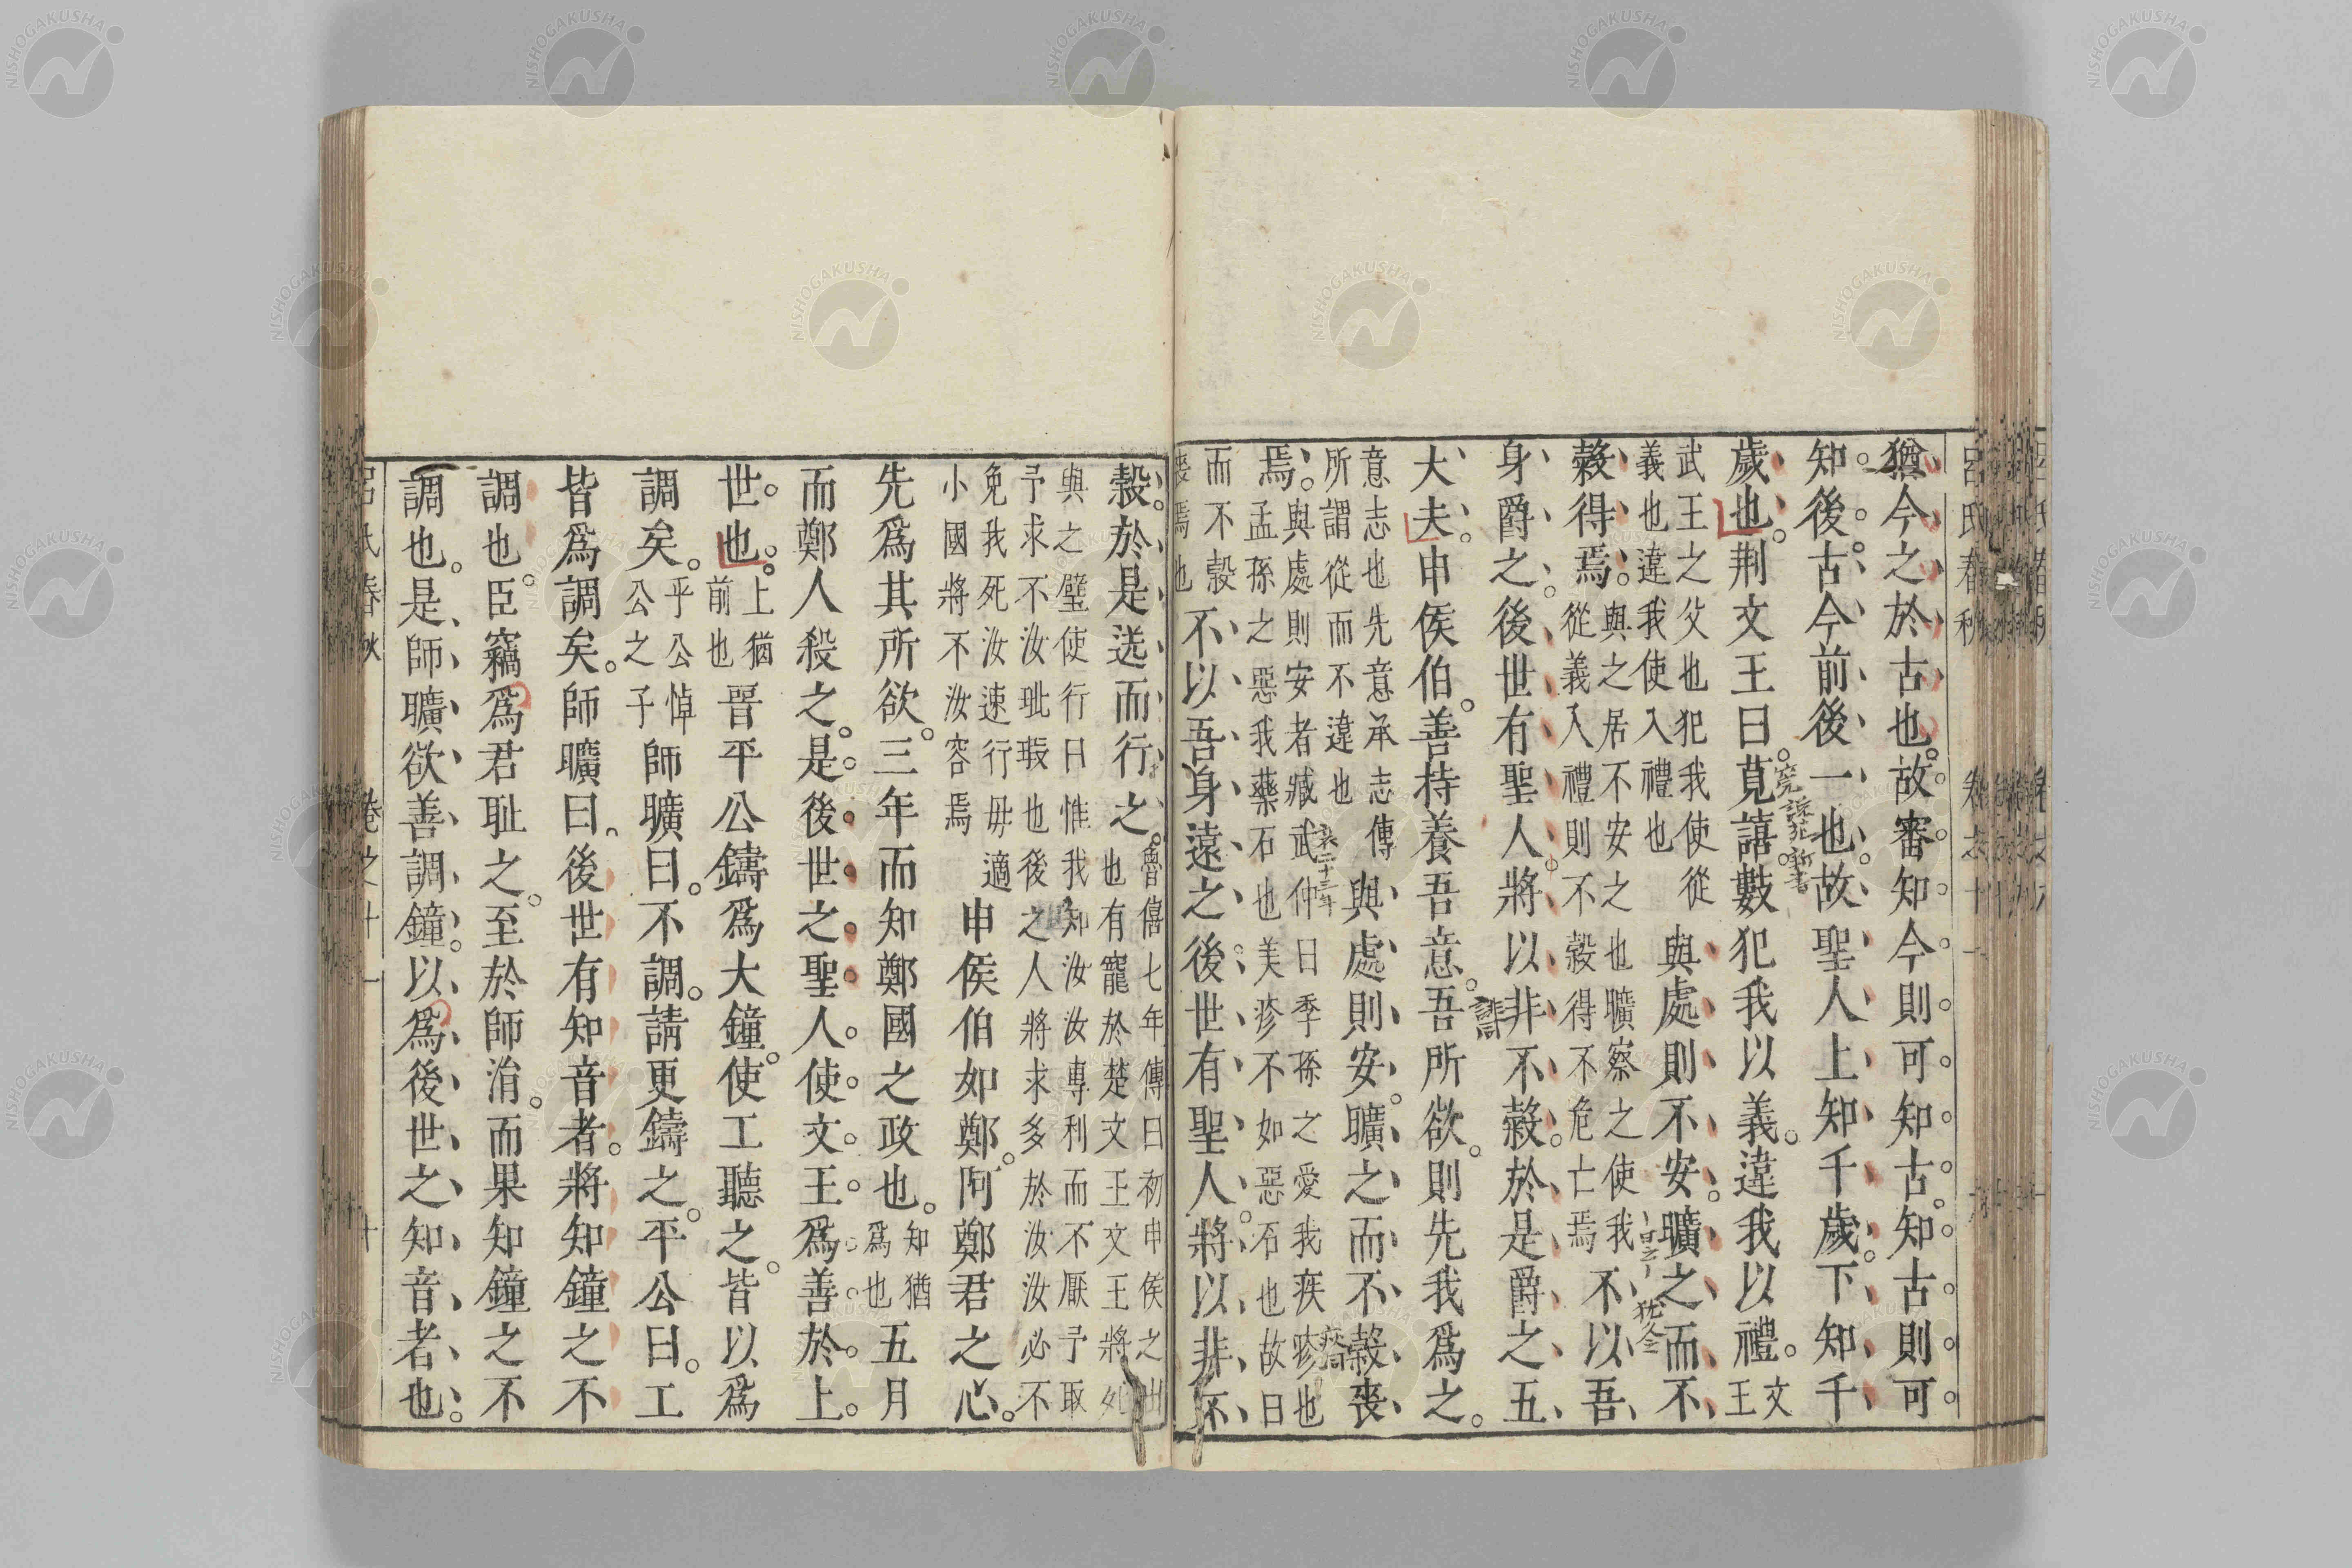 呂氏春秋 卷之十一
猶今之於古也。故審知今則可知古。知古則可
知後。古今前後一也。故聖人上知千歲。下知千
歲也。荆文王曰。莧譆數犯我以義。違我以禮。文
王
武王之父也犯我使從
義也違我使入禮也
與處則不安。曠之而不
穀得焉。與之居不安之也曠察之使我
從義入禮則不穀得不危亡焉
不以吾
身爵之。後世有聖人將以非不穀。於是爵之五
大夫。申侯伯。善持養吾意。吾所欲。則先我爲之。
意志也先意承志傳
所謂從而不違也
與處則安。曠之而不穀喪
焉。與處則安者臧武仲曰季孫之愛我疾疹也
孟孫之惡我藥石也美疹不如惡石也故曰
而不穀
喪焉也
不以吾身遠之。後世有聖人。將以非不
穀。於是送而行之。魯僖七年傳曰初申侯之出
也有寵於楚文王文王將死
與之璧使行曰惟我知汝汝專利而不厭予取
予求不汝玼瑕也後之人將求多於汝汝必不
免我死汝速行毋適
小國將不汝容焉
申侯伯如鄭。阿鄭君之心。
先爲其所欲。三年而知鄭國之政也。知猶
爲也
五月
而鄭人殺之。是後世之聖人。使文王爲善於上
世也。上猶
前也
晉平公鑄爲大鐘。使工聽之。皆以爲
調矣。平公悼
公之子
師曠曰。不調。請更鑄之。平公曰。工
皆爲調矣。師曠曰。後世有知音者。將知鐘之不
調也。臣竊爲君耻之。至於師涓。而果知鐘之不
調也。是師曠欲善調鐘。以爲後世之知音者也。
呂氏春秋 卷之十一 十